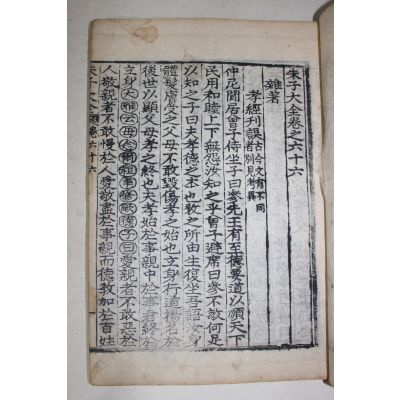 朱子大全卷之六十六
雜著
孝經刊誤古今文有不同者別見考異
仲尼閒居曾子侍坐子曰參先王有至德要道以順天下
民用和睦上下無怨汝知之乎曾子避席曰參不敏何足
以知之子曰夫孝德之本也敎之所由生復坐吾語汝身
體髮膚受之父母不敢毀傷孝之始也立身行道揚名於
後世以顯父母孝之終也夫孝始於事親中於事君終於
立身大雅云毋念爾祖聿脩厥德子曰愛親者不敢惡於
人敬親者不敢慢於人愛敬盡於事親而德敎加於百姓
朱子大全卷六十六